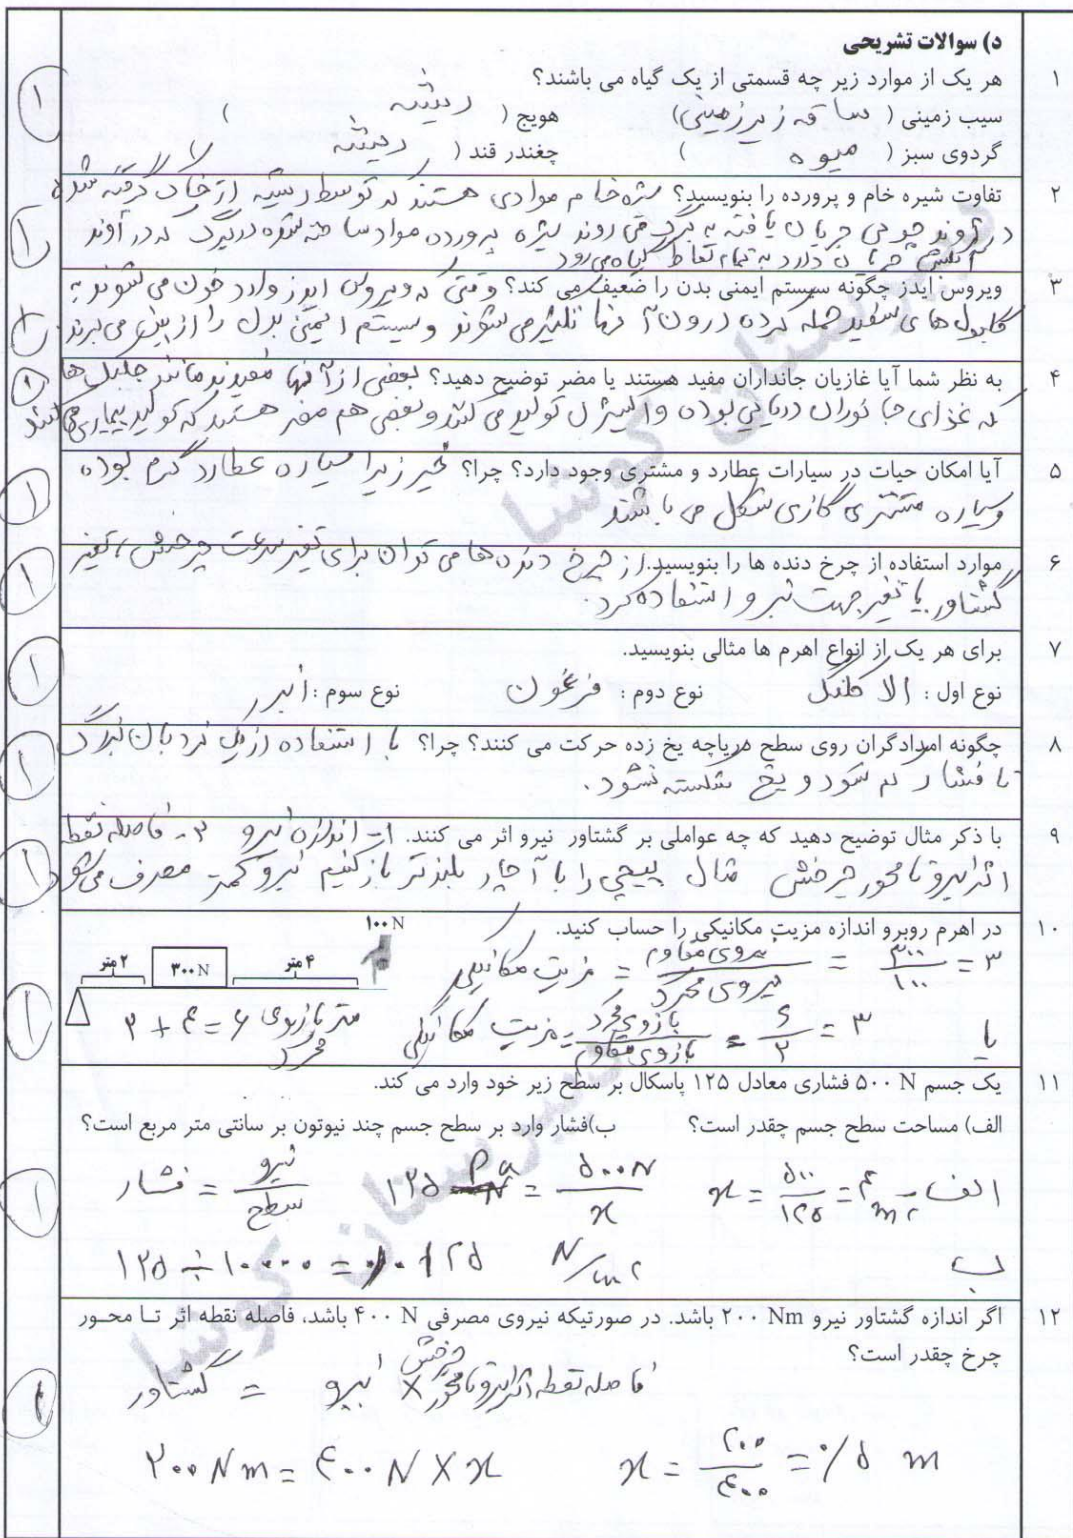 د) سوالات تشریحی
۱ هر یک از موارد زیر چه قسمتی از یک گیاه می باشند؟
سیب زمینی ( ساقه زیرزمینی ) هویج ( ریشه )
گردوی سبز ( میوه ) چغندر قند ( ریشه )
۱
۲ تفاوت شیره خام و پرورده را بنویسید؟ شیره خام موادی هستند که توسط ریشه از خاک گرفته شده
در آوند چوبی جریان یافته به برگ می روند شیره پرورده مواد ساخته شده در برگ که در آوند
آبکشی جریان دارد به تمام نقاط گیاه می رود
۱
۳ ویروس ایدز چگونه سیستم ایمنی بدن را ضعیف می کند؟ وقتی که ویروس ایدز وارد خون می شوند به
گلبول های سفید حمله کرده درون آنها تکثیر می شوند و سیستم ایمنی بدن را از بین می برند
۱
۴ به نظر شما آیا غازیان جانداران مفید هستند یا مضر توضیح دهید؟ بعضی از آنها مفیدند مانند جلبک ها
که غذای جانوران دریایی بوده و اکسیژن تولید می کنند و بعضی هم مضر هستند که تولید بیماری می کنند
۵ آیا امکان حیات در سیارات عطارد و مشتری وجود دارد؟ چرا؟ خیر زیرا سیاره عطارد گرم بوده
و سیاره مشتری گازی شکل می باشند
۱
۶ موارد استفاده از چرخ دنده ها را بنویسید. از چرخ دنده ها می توان برای تغیر سرعت چرخش، تغیر
گشتاور یا تغیر جهت نیرو استفاده کرد.
۱
۷ برای هر یک از انواع اهرم ها مثالی بنویسید.
نوع اول : الا کلنگ نوع دوم : فرغون نوع سوم : انبر
۱
۸ چگونه امدادگران روی سطح دریاچه یخ زده حرکت می کنند؟ چرا؟ با استفاده از یک نردبان بزرگ
تا فشار کم شود و یخ شکسته نشود.
۱
۹ با ذکر مثال توضیح دهید که چه عواملی بر گشتاور نیرو اثر می کنند. ۱- اندازه نیرو ۲- فاصله نقطه
اثر نیرو تا محور چرخش مثال پیچی را با آچار بلندتر باز کنیم نیرو کمتر مصرف می شود
۱
۱۰ در اهرم روبرو اندازه مزیت مکانیکی را حساب کنید.
۱۰۰ N
۲ متر ۳۰۰ N ۴ متر
مزیت مکانیکی = نیروی مقاوم / نیروی محرک = ۳۰۰ / ۱۰۰ = ۳
یا مزیت مکانیکی = بازوی محرک / بازوی مقاوم = ۶ / ۲ = ۳
۲ + ۴ = ۶ متر بازوی محرک
۱
۱۱ یک جسم ۵۰۰ N فشاری معادل ۱۲۵ پاسکال بر سطح زیر خود وارد می کند.
الف) مساحت سطح جسم چقدر است؟ ب)فشار وارد بر سطح جسم چند نیوتون بر سانتی متر مربع است؟
الف فشار = نیرو / سطح ۱۲۵ Pa = ۵۰۰ N / x x = ۵۰۰ / ۱۲۵ = ۴ m۲
ب ۱۲۵ ÷ ۱۰۰۰۰ = ۰/۰۱۲۵ N/cm۲
۱
۱۲ اگر اندازه گشتاور نیرو ۲۰۰ Nm باشد. در صورتیکه نیروی مصرفی ۴۰۰ N باشد، فاصله نقطه اثر تا محور
چرخ چقدر است؟
گشتاور = نیرو × فاصله نقطه اثر نیرو تا محور چرخش
۲۰۰ Nm = ۴۰۰ N × x x = ۲۰۰ / ۴۰۰ = ۰/۵ m
دبیرستان کوشا
دبیرستان کوشا